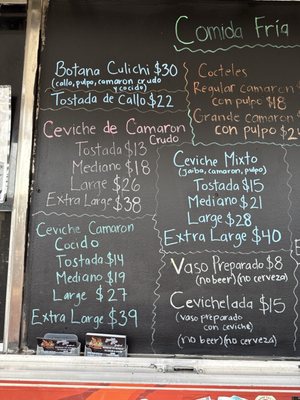 Comida Fria
Botana Culichi $30
(callo, pulpo, camaron crudo
y cocido)
Tostada de Callo $22
Cocteles
Regular camaron
con pulpo $18
Grande camaron
con pulpo $2
Ceviche de Camaron
Crudo
Tostada $13
Mediano $18
Large $26
Extra Large $38
Ceviche Mixto
(Jaiba, camaron, pulpo)
Tostada $15
Mediano $21
Large $28
Extra Large $40
Ceviche Camaron
Cocido
Tostada $14
Mediano $19
Large $27
Extra Large $39
Vaso Preparado $8
(no beer) (no cerveza)
Cevichelada $15
(vaso preparado
con ceviche)
(no beer) (no cerveza)